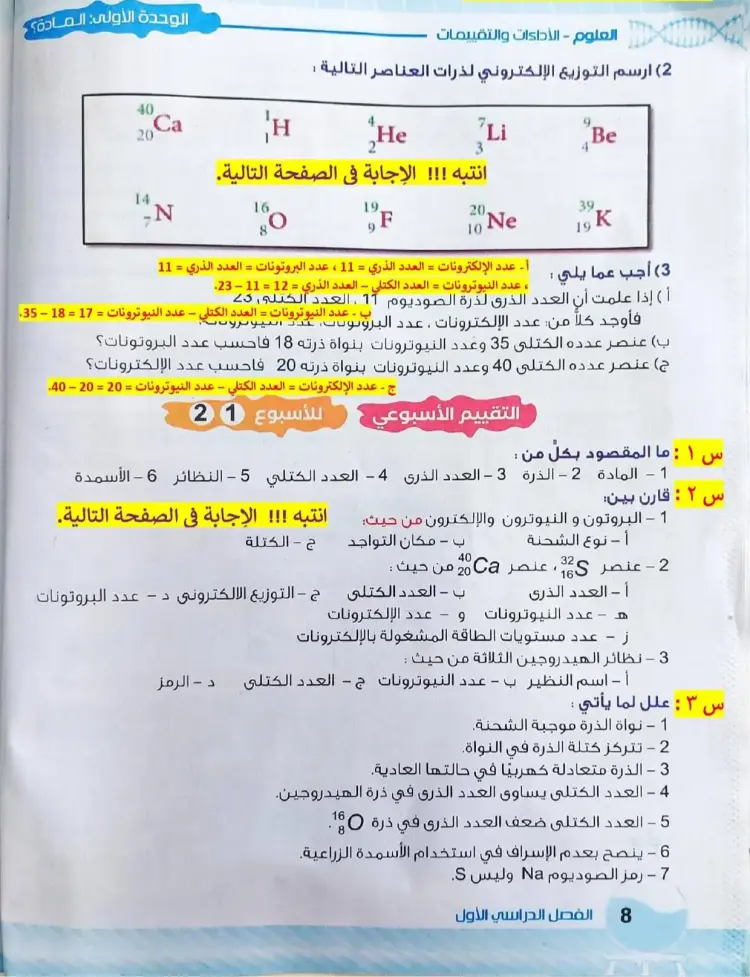 الوحدة الأولى: المادة؟
العلوم – الأداءات والتقييمات
2) ارسم التوزيع الإلكتروني لذرات العناصر التالية :
⁴⁰₂₀Ca ¹₁H ⁴₂He ⁷₃Li ⁹₄Be
انتبه !!! الإجابة فى الصفحة التالية.
¹⁴₇N ¹⁶₈O ¹⁹₉F ²⁰₁₀Ne ³⁹₁₉K
3) أجب عما يلي :
أ - عدد الإلكترونات = العدد الذري = 11 ، عدد البروتونات = العدد الذري = 11
، عدد النيوترونات = العدد الكتلي – العدد الذري = 12 = 11 – 23.
أ ) إذا علمت أن العدد الذرى لذرة الصوديوم 11 ، العدد الكتلى 23
ب - عدد النيوترونات = العدد الكتلي – عدد النيوترونات = 17 = 18 – 35.
فأوجد كلاً من: عدد الإلكترونات ، عدد البروتونات، عدد النيوترونات؟
ب) عنصر عدده الكتلى 35 وعدد النيوترونات بنواة ذرته 18 فاحسب عدد البروتونات؟
ج) عنصر عدده الكتلى 40 وعدد النيوترونات بنواة ذرته 20 فاحسب عدد الإلكترونات؟
ج - عدد الإلكترونات = العدد الكتلي – عدد النيوترونات = 20 = 20 – 40.
التقييم الأسبوعي للأسبوع 1 2
س ١ : ما المقصود بكلٍ من :
1 – المادة 2 – الذرة 3 – العدد الذرى 4 – العدد الكتلي 5 – النظائر 6 – الأسمدة
س ٢ : قارن بين:
1 – البروتون و النيوترون والإلكترون من حيث:
انتبه !!! الإجابة فى الصفحة التالية.
أ – نوع الشحنة ب – مكان التواجد ج – الكتلة
2 – عنصر ³²₁₆S ، عنصر ⁴⁰₂₀Ca من حيث :
أ – العدد الذرى ب – العدد الكتلى ج – التوزيع الالكترونى د – عدد البروتونات
هـ – عدد النيوترونات و – عدد الإلكترونات
ز – عدد مستويات الطاقة المشغولة بالإلكترونات
3 – نظائر الهيدروجين الثلاثة من حيث :
أ – اسم النظير ب – عدد النيوترونات ج – العدد الكتلى د – الرمز
س ٣ : علل لما يأتي :
1 – نواة الذرة موجبة الشحنة.
2 – تتركز كتلة الذرة في النواة.
3 – الذرة متعادلة كهربيًا في حالتها العادية.
4 – العدد الكتلى يساوى العدد الذرى في ذرة الهيدروجين.
5 – العدد الكتلى ضعف العدد الذرى في ذرة ¹⁶₈O.
6 – ينصح بعدم الإسراف في استخدام الأسمدة الزراعية.
7 – رمز الصوديوم Na وليس S.
8 الفصل الدراسي الأول